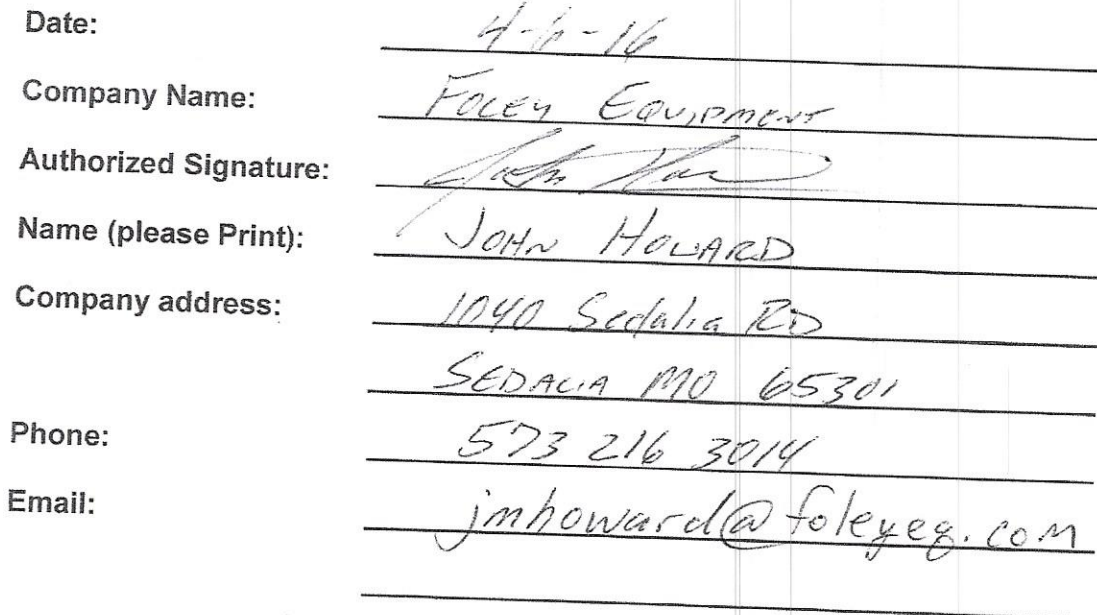 Date: 4-6-16
Company Name: FOLEY EQUIPMENT
Authorized Signature: John
Name (please Print): JOHN HOWARD
Company address: 1040 Sedalia RD
SEDALIA MO 65301
Phone: 573 216 3014
Email: jmhoward@foleyeq.com